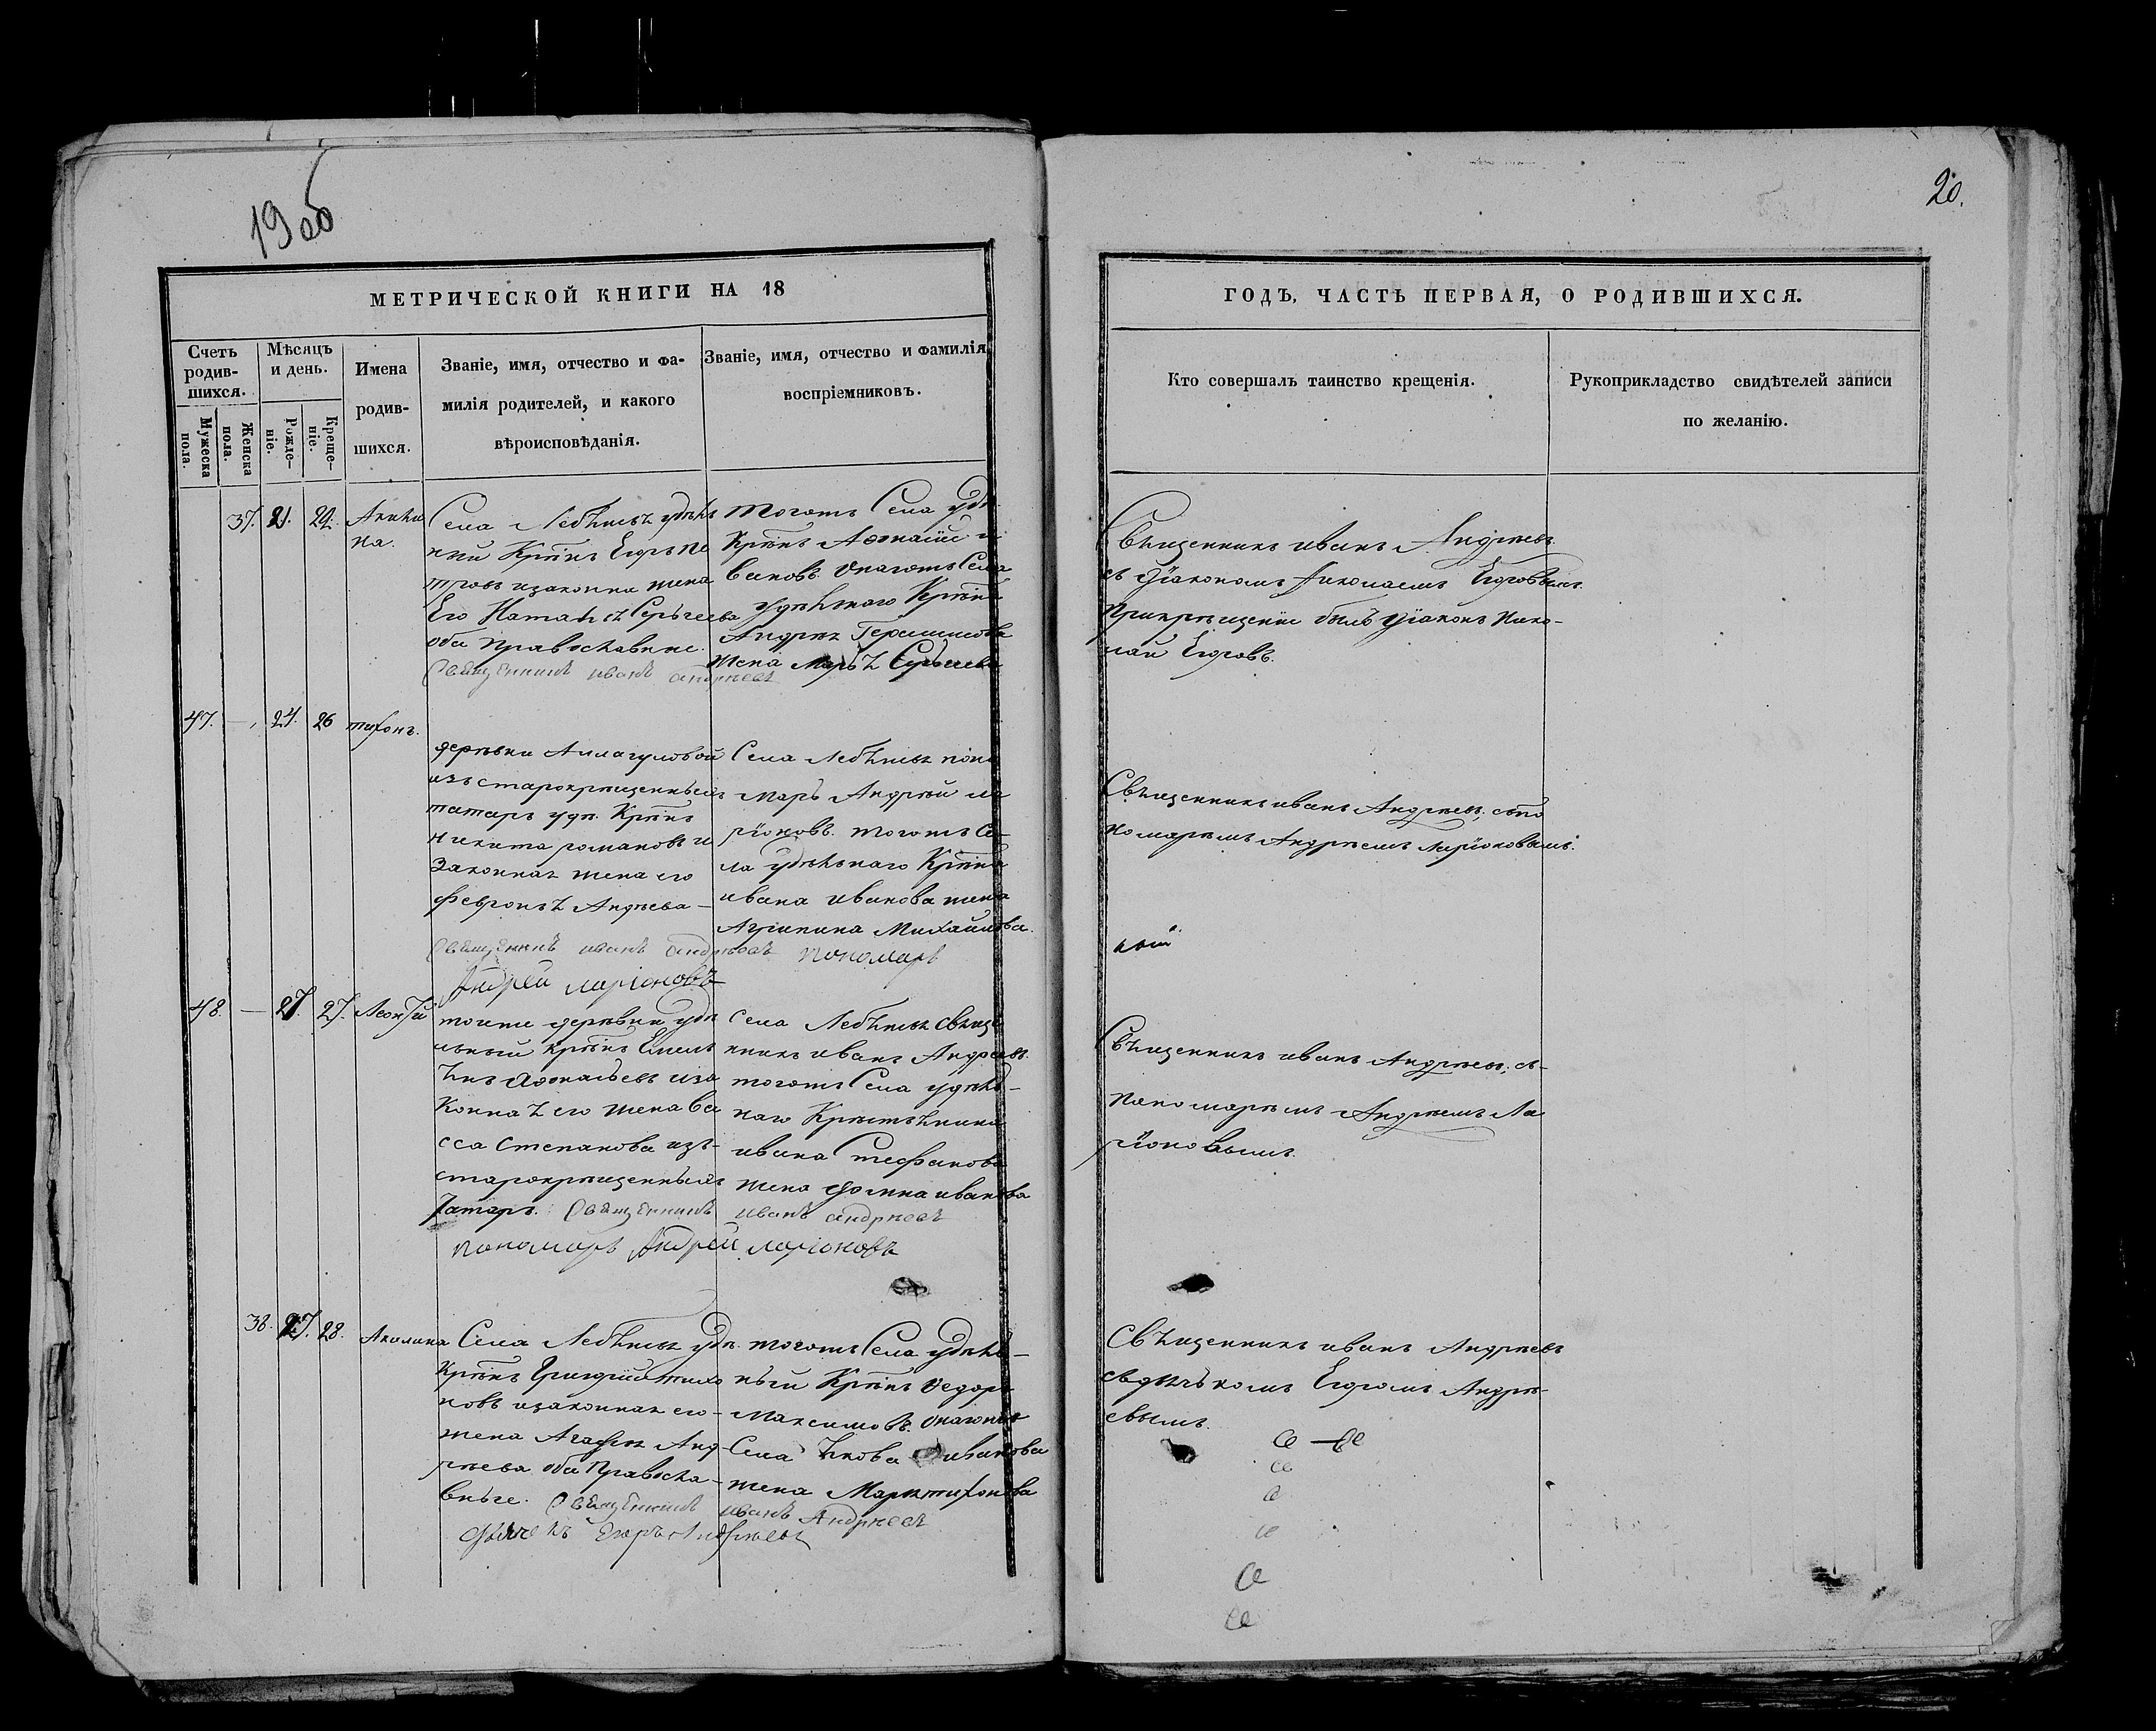 19 об
20.
МЕТРИЧЕСКОЙ КНИГИ НА 18
ГОДЪ, ЧАСТЬ ПЕРВАЯ, О РОДИВШИХСЯ.
Счетъ родив-шихся.
Мужеска пола.
Женска пола.
Мѣсяцъ и день.
Рожде-ніе.
Креще-ніе.
Имена
родив-
шихся.
Званіе, имя, отчество и фа-
милія родителей, и какого
вѣроисповѣданія.
Званіе, имя, отчество и фамилія
воспріемниковъ.
Кто совершалъ таинство крещенія.
Рукоприкладство свидѣтелей записи
по желанію.
37. 21. 22.
Села
Крѣнъ Егоръ пе
тровъ изаконна жена
Его Серьгеева
оба православние.
Священникъ иванъ андрѣевъ
тогожъ Села удѣ
Крѣнъ Афонасїй и
вановъ. онагожъ Села
удѣльнаго Крѣна
Андрея Герасимова
жена
Священникъ иванъ Андрѣевъ
съ дїакономъ Николаемъ Егоровымъ.
прикрѣщенїи былъ дїаконъ Нико-
лай Егоровъ.
47. — 24. 26 тихонъ.
деревни Аллагуловой
изъ старокрѣщенныхъ
татаръ удѣ. Крѣнъ
Никита романовъ и
законная жена его
феврония Андрева —
Священикъ иванъ андрѣевъ пономарь
Андрей ларїоновъ
Села поно
марь Андрѣй ла
рїоновъ. тогожъ Се-
ла удѣльнаго Крѣна
ивана иванова жена
Агрипина Михайлова.
Священникъ иванъ Андрѣевъ, съ по
номарѣмъ Андрѣемъ Ларїоновымъ.
48. — 27. 27. Леонтїй
тоиже деревни удѣ
льный крѣнъ Емель
янъ Афонасьевъ иза
конная его жена ва
сса Степанова изъ-
старокрѣщенныхъ
татаръ. Священникъ иванъ андрѣевъ
пономарь Андрей ларїоновъ
Села свяще
нникъ иванъ Андреевъ.
тогожъ Села удѣль-
наго Крѣстьянина
ивана Стефанова
жена иванова
Священникъ иванъ Андрѣевъ, съ-
пономарѣмъ Андрѣемъ Ла
рїоновымъ.
38. 27. 28. Акилина
Села удѣ.
Крѣнъ Григорїй тихо
новъ изаконная его-
жена Агафия Анд-
рѣева оба Правосла-
вные. Священникъ иванъ Андрѣевъ
дьячекъ Егоръ Андрѣевъ
тогожъ Села удѣль-
ный Крѣнъ Ѳедоръ
Максимовъ. онагожъ
Села Якова иванова
жена Марья тихонова
Священникъ иванъ Андрѣевъ
съдьячькомъ Егоромъ Андрѣ-
евымъ.